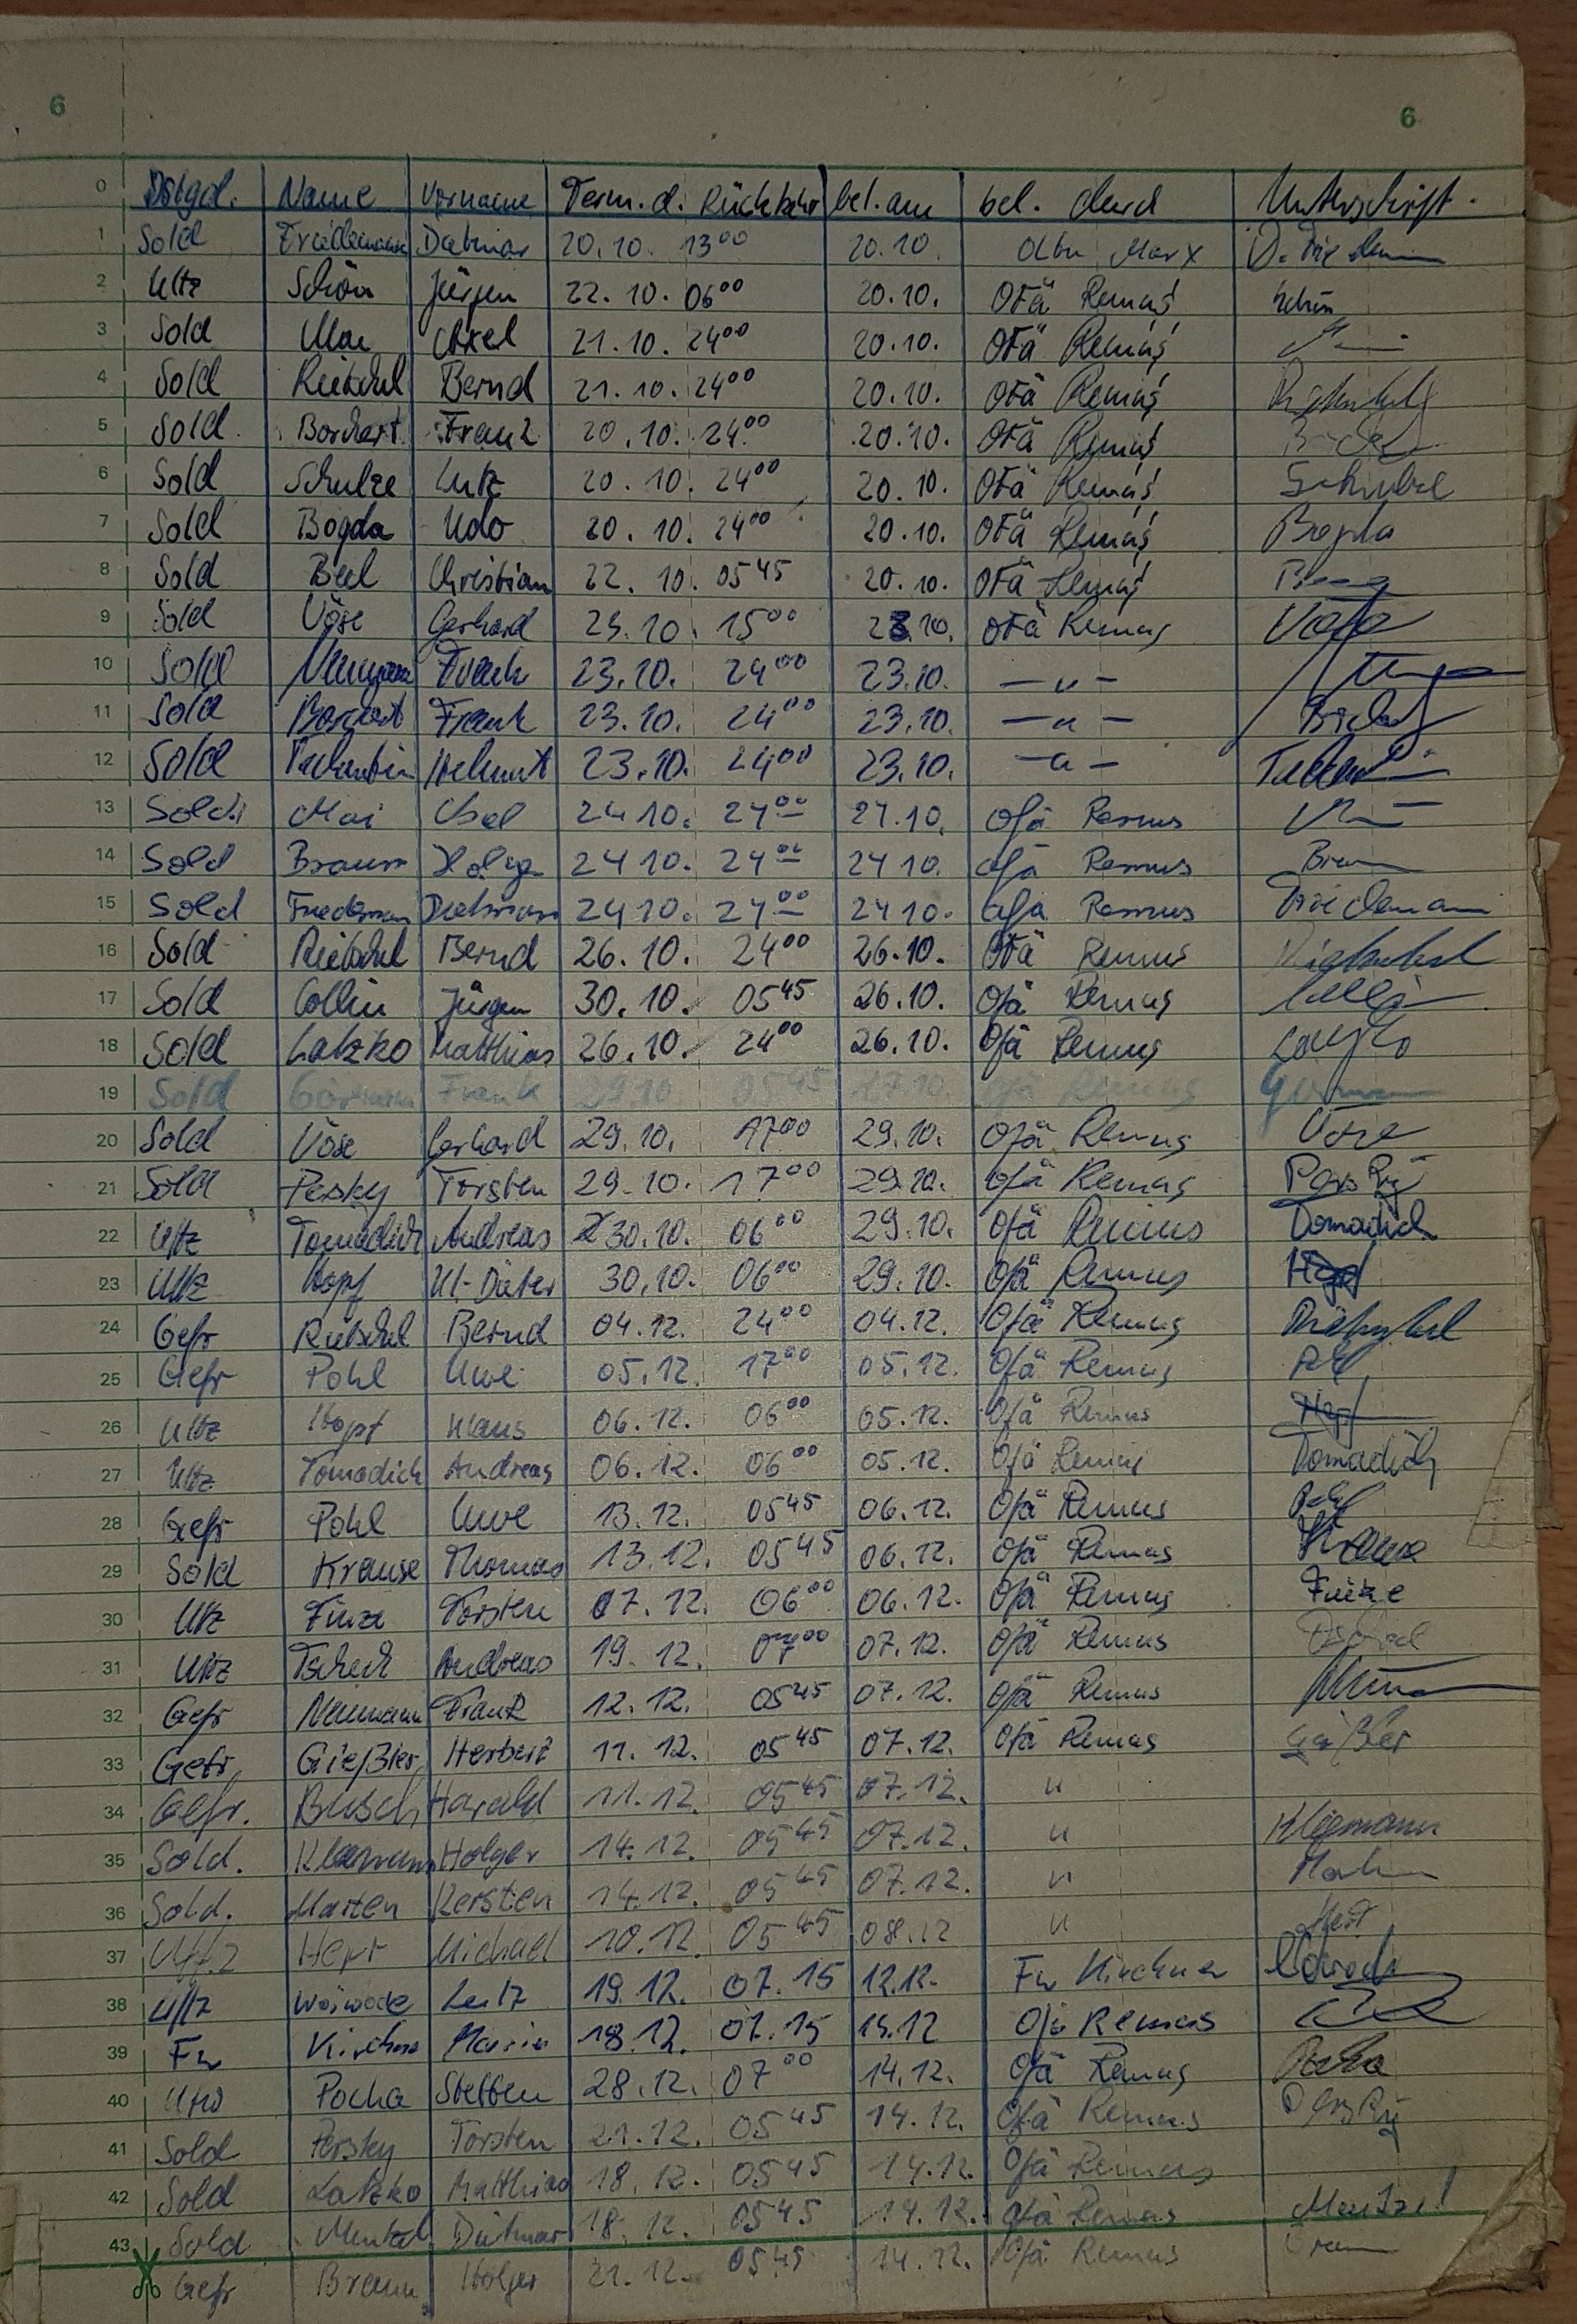 6 6
0 Dstgd. Name Vorname Term. d. Rückkehr bel. am bel. durch Unterschrift
1 Sold Friedemann Dietmar 20.10. 13 00 20.10. Marx
2 Uffz Schön Jürgen 22.10. 06 00 20.10. OFä Remus Schön
3 Sold Mai Axel 21.10. 24 00 20.10. OFä Remus
4 Sold Rietschel Bernd 21.10. 24 00 20.10. OFä Remus
5 Sold Borchert Frank 20.10. 24 00 20.10. OFä Remus
6 Sold Schulze Lutz 20.10. 24 00 20.10. OFä Remus Schulze
7 Sold Bogda Udo 20.10. 24 00 20.10. OFä Remus Bogda
8 Sold Christian 22.10. 05 45 20.10. OFä Remus
9 Sold Vöse Gerhard 23.10. 15 00 23.10. OFä Remus Vöse
10 Sold Neumann Frank 23.10. 24 00 23.10. — " —
11 Sold Borchert Frank 23.10. 24 00 23.10. — " —
12 Sold Helmut 23.10. 24 00 23.10. — " —
13 Sold. Mai Axel 24 10. 24 00 24.10. Ofä Remus
14 Sold Braun Holger 24 10. 24 00 24 10. Ofä Remus
15 Sold Friedemann Dietmar 24 10. 24 00 24 10. Ofä Remus Friedemann
16 Sold Rietschel Bernd 26.10. 24 00 26.10. OFä Remus Rietschel
17 Sold Collin Jürgen 30.10. 05 45 26.10. Ofä Remus Collin
18 Sold Latzko Matthias 26.10. 24 00 26.10. Ofä Remus Latzko
19 Sold Frank 29.10 05 45 27.10. Ofä Remus
20 Sold Vöse Gerhard 29.10. 17 00 29.10. Ofä Remus Vöse
21 Sold Persky Torsten 29.10. 17 00 29.10. Ofä Remus Persky
22 Uffz Tomadich Andreas 30.10. 06 00 29.10. Ofä Remus Tomadich
23 Uffz Hopf Kl.-Dieter 30.10. 06 00 29.10. Ofä Remus Hopf
24 Gefr Rietschel Bernd 04.12. 24 00 04.12. Ofä Remus Rietschel
25 Gefr Pohl Uwe 05.12. 17 00 05.12. Ofä Remus Pohl
26 Uffz Hopf Klaus 06.12. 06 00 05.12. Ofä Remus Hopf
27 Uffz Tomadich Andreas 06.12. 06 00 05.12. Ofä Remus Tomadich
28 Gefr Pohl Uwe 13.12. 05 45 06.12. Ofä Remus Pohl
29 Sold Krause Thomas 13.12. 05 45 06.12. Ofä Remus Krause
30 Uffz Finze Torsten 07.12. 06 00 06.12. Ofä Remus Finze
31 Uffz Andreas 19.12. 07 00 07.12. Ofä Remus
32 Gefr Neumann Frank 12.12. 05 45 07.12. Ofä Remus
33 Gefr Gießler Herbert 11.12. 05 45 07.12. Ofä Remus Gießler
34 Gefr. Busch Harald 11.12. 05 45 07.12. "
35 Sold. Kleemann Holger 14.12. 05 45 07.12. " Kleemann
36 Sold. Marten Kersten 14.12. 05 45 07.12. "
37 Uffz Michael 10.12. 05 45 08.12 "
38 Uffz Woiwode Lutz 19.12. 07.15 12.12. Fw Kirchner
39 Fw Kirchner Mario 18.12. 07.15 15.12 Ofä Remus
40 Uffz Pocha Steffen 28.12. 07 00 14.12. Ofä Remus Pocha
41 Sold Persky Torsten 21.12. 05 45 14.12. Ofä Remus Persky
42 Sold Latzko Matthias 18.12. 05 45 14.12. Ofä Remus
43 Sold Mentzel Dietmar 18.12. 05 45 14.12. Ofä Remus Mentzel
Gefr Braun Holger 21.12. 05 45 14.12. Ofä Remus